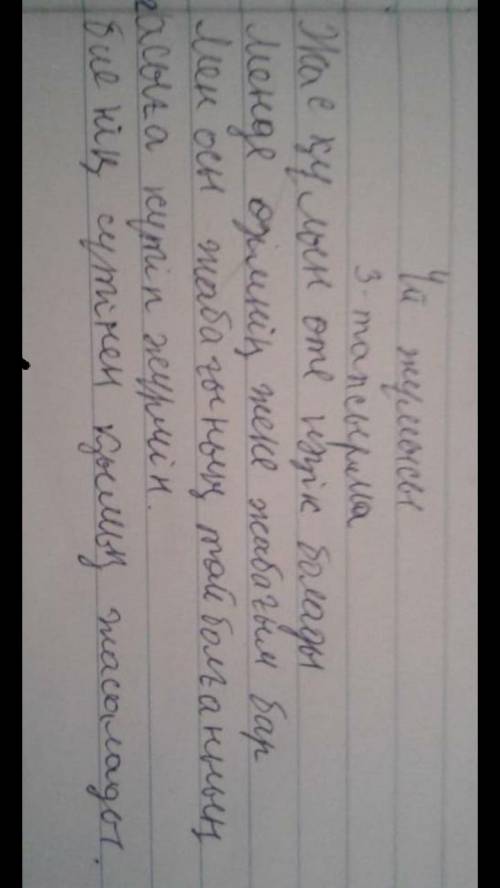 Үй жұмысы
3-тапсырма
Жас құлын өте нәзік болады
Менде өзімнің жеке жабағым бар
Мен осн жабағының тай болғанның
асыға күтіп жүрмін.
Биенің сүтінен қымың жасалады.